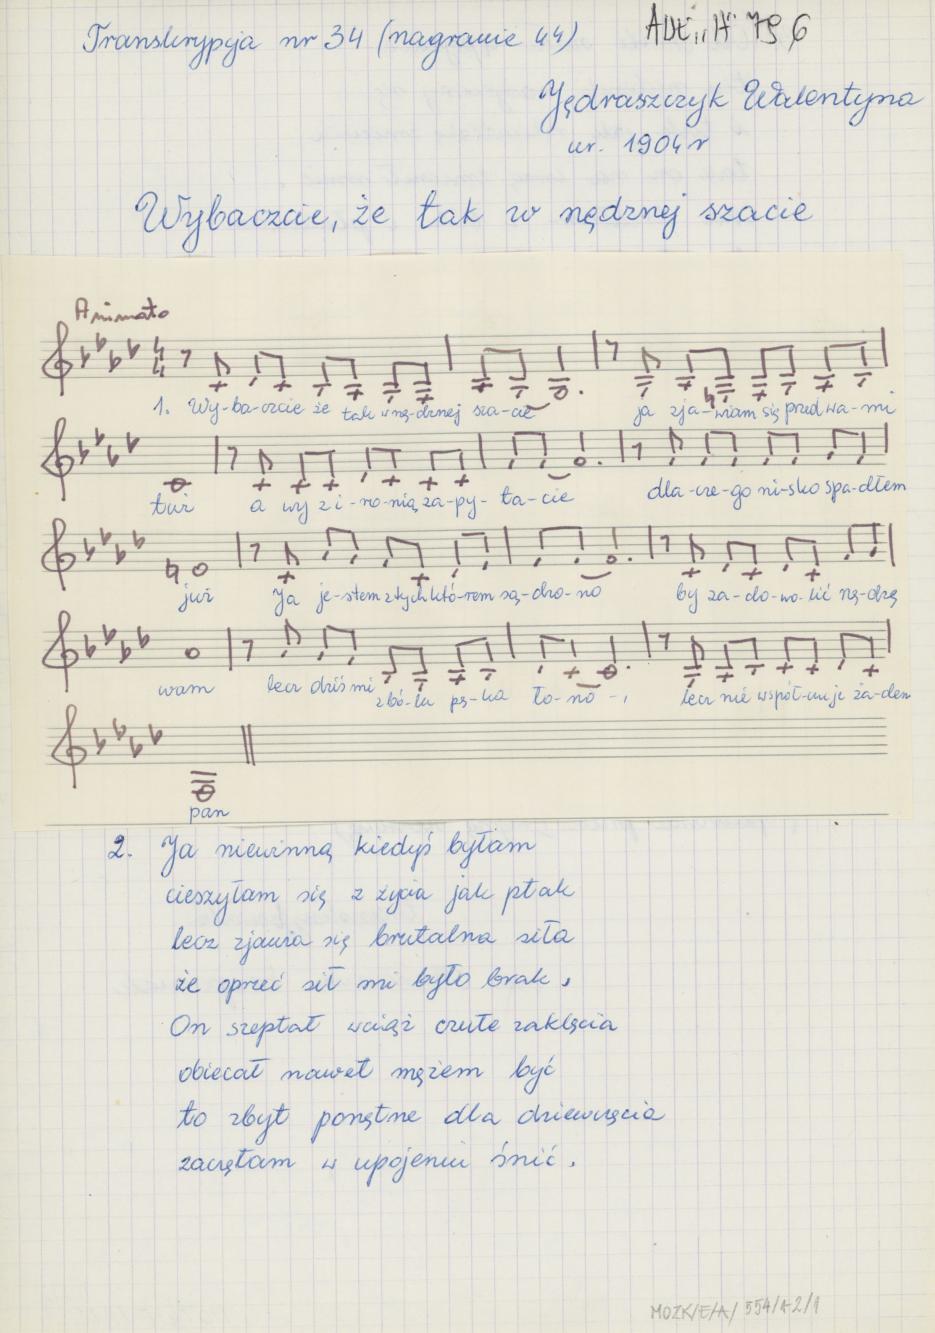 Transkrypcja nr 34 (nagranie 44)
Jędraszczyk Walentyna
ur. 1904 r
Wybaczcie, że tak w nędznej szacie
Animato
1. Wy-ba-czcie że tak w nę-dznej sza-cie ja zja-wiam się przed wa-mi
tuż a wy z i-ro-nią za-py-ta-cie dla-cze-go ni-sko spa-dłem
już Ja je-stem z tych któ-rem są-dzo-no by za-do-wo-lić żą-dzę
wam lecz dziś mi z bó-lu pę-ka ło-no -, lecz nie współ-czu-je ża-den
pan
2. Ja niewinną kiedyś byłam
cieszyłam się z życia jak ptak
lecz zjawia się brutalna siła
że oprzeć sił mi było brak,
On szeptał wciąż czułe zaklęcia
obiecał nawet mężem być
to zbyt ponętne dla dziewczęcia
zaczęłam w upojeniu śnić.
MOZK/E/A/554/A-2/1